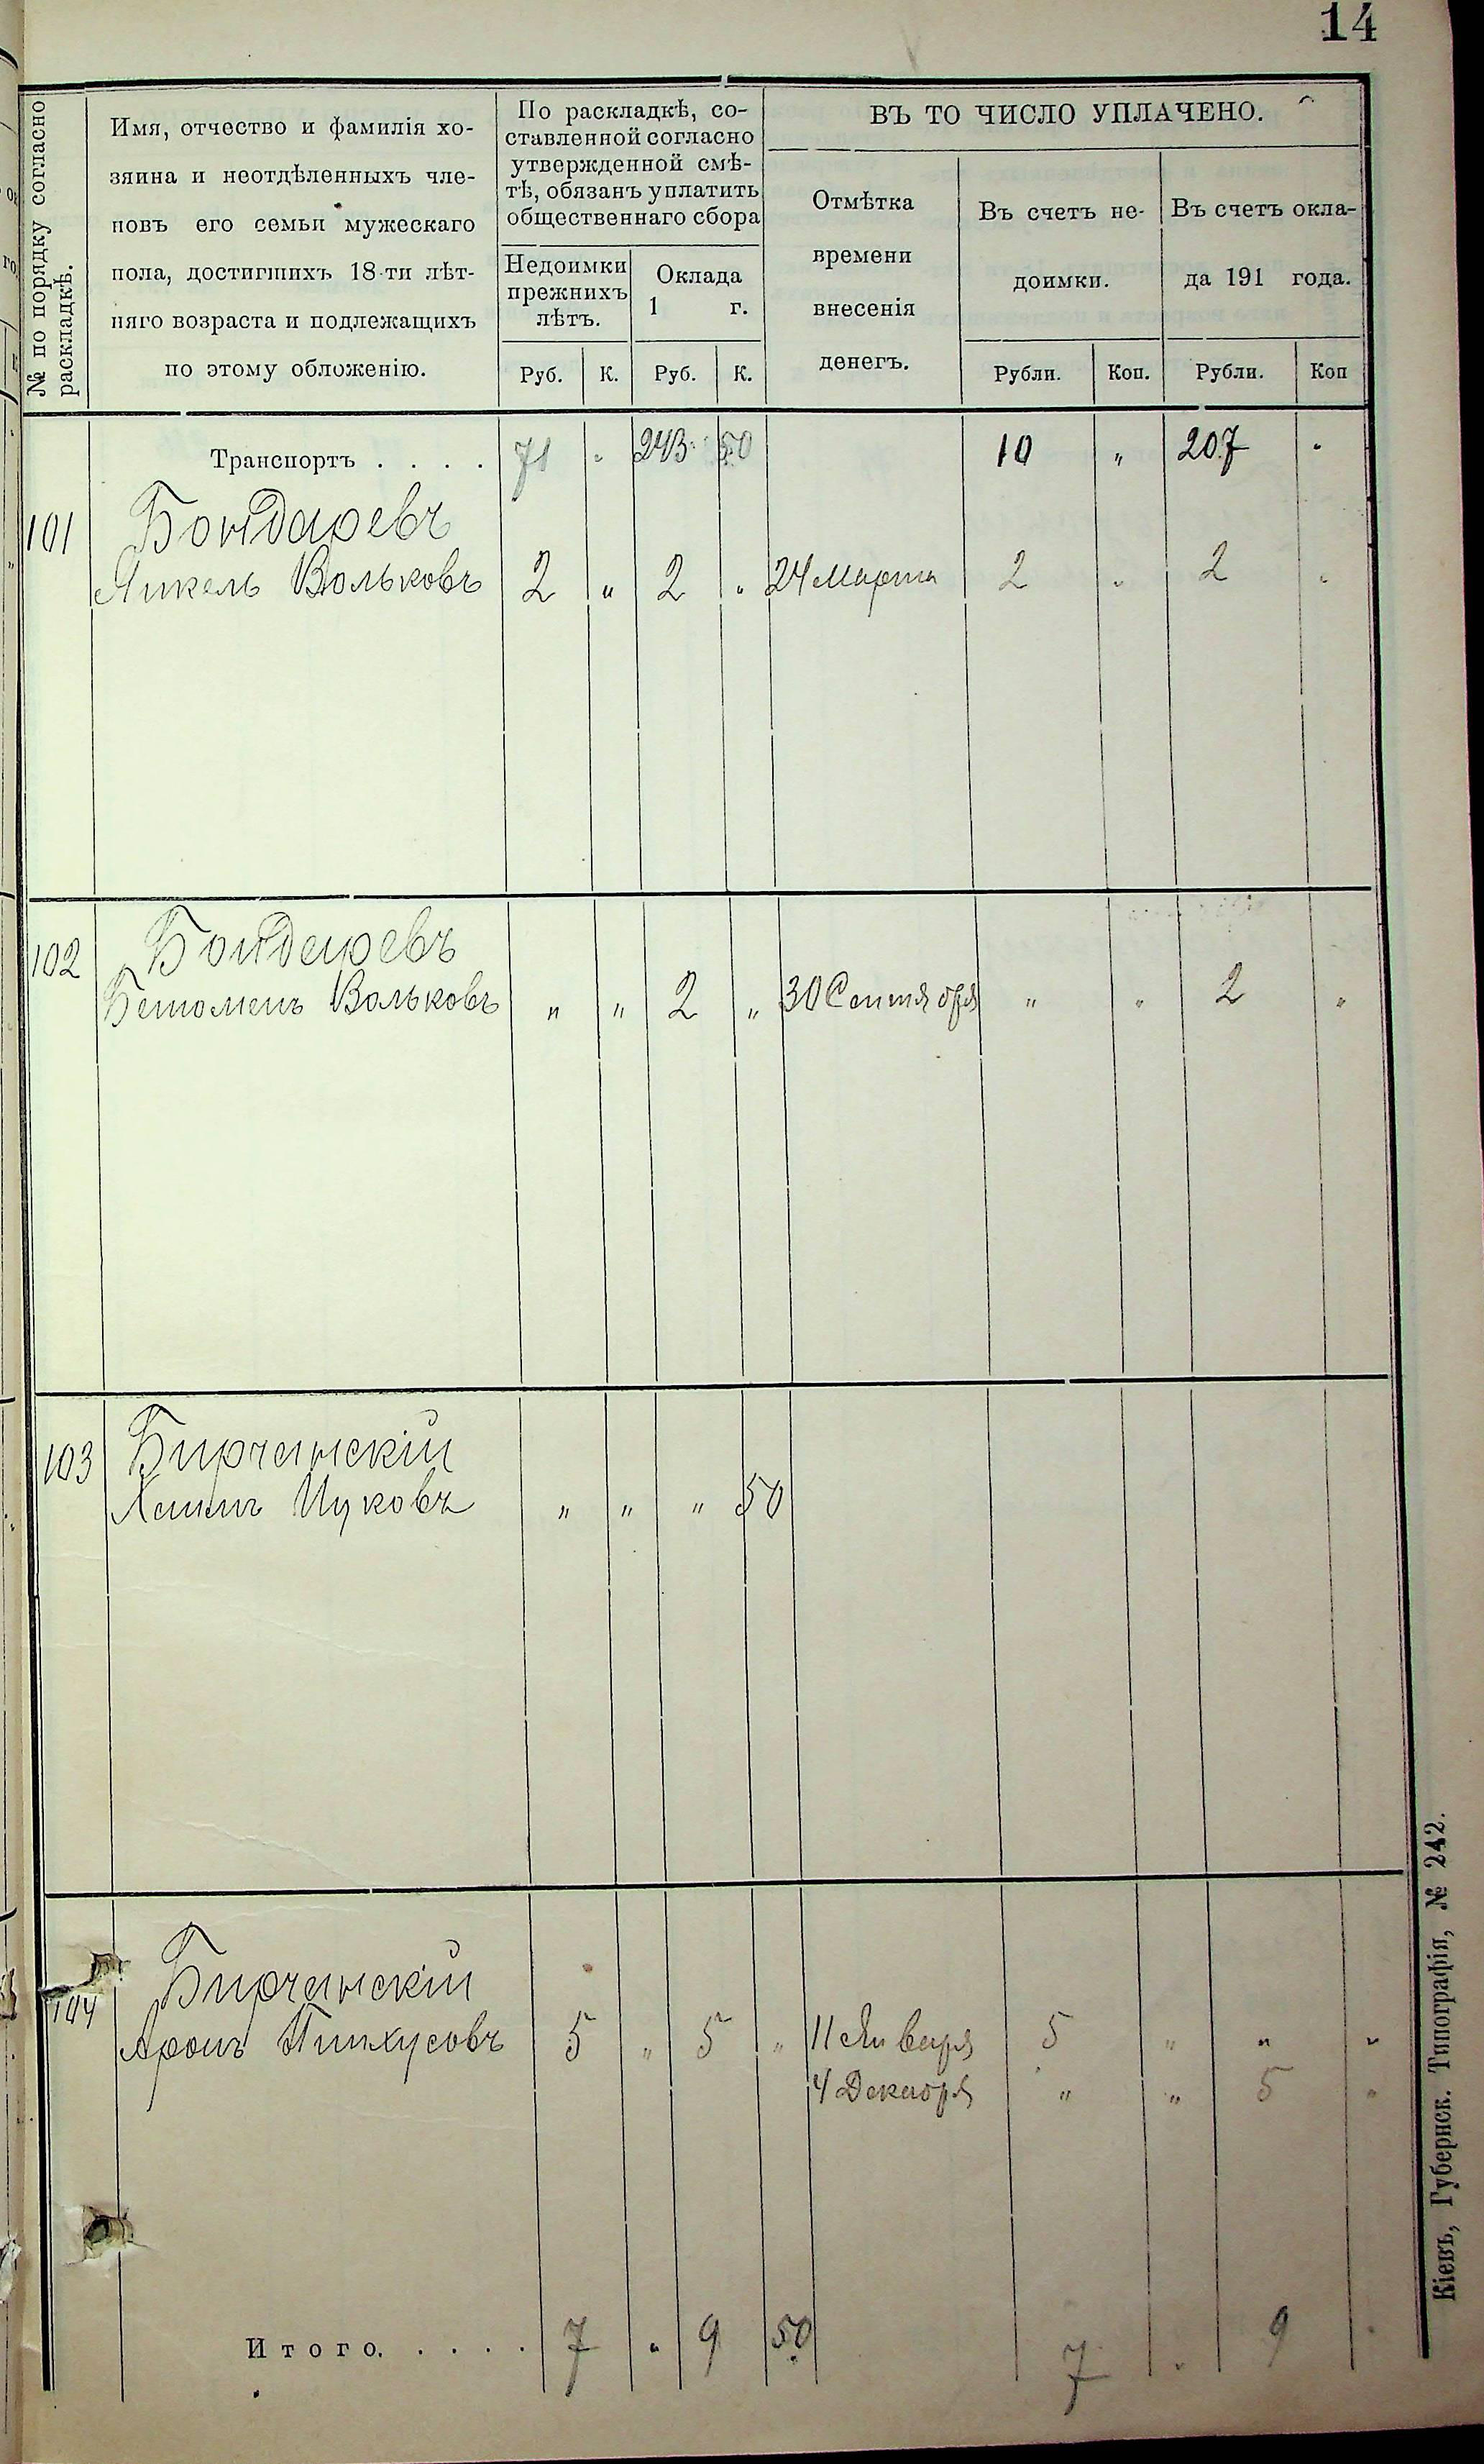 14
№ по порядку согласно
раскладкѣ.
Имя, отчество и фамилія хо-
зяина и неотдѣленныхъ чле-
новъ его семьи мужескаго
пола, достигшихъ 18-ти лѣт-
няго возраста и подлежащихъ
по этому обложенію.
По раскладкѣ, со-
ставленной согласно
утвержденной смѣ-
тѣ, обязанъ уплатить
общественнаго сбора
Недоимки
прежнихъ
лѣтъ.
Оклада
1 г.
Руб. К. Руб. К.
ВЪ ТО ЧИСЛО УПЛАЧЕНО.
Отмѣтка
времени
внесенія
денегъ.
Въ счетъ не-
доимки.
Въ счетъ окла-
да 191 года.
Рубли. Коп. Рубли. Коп
Транспортъ . . . . 71 " 243 50 10 " 207 "
101 Бондаревъ
Янкель Вольковъ 2 " 2 " 24 Марта 2 " 2 "
102 Бондаревъ
Вольковъ " " 2 " 30 Сентября " " 2 "
103 Бирчанскій
Хаимъ Ицковъ " " " 50
104 Бирчанскій
Аронъ Пинхусовъ 5 " 5 " 11 Января 5 " " "
4 Декабря " " 5 "
Итого. . . . . 7 " 9 50 7 " 9 "
Кіевъ, Губернск. Типографія, № 242.